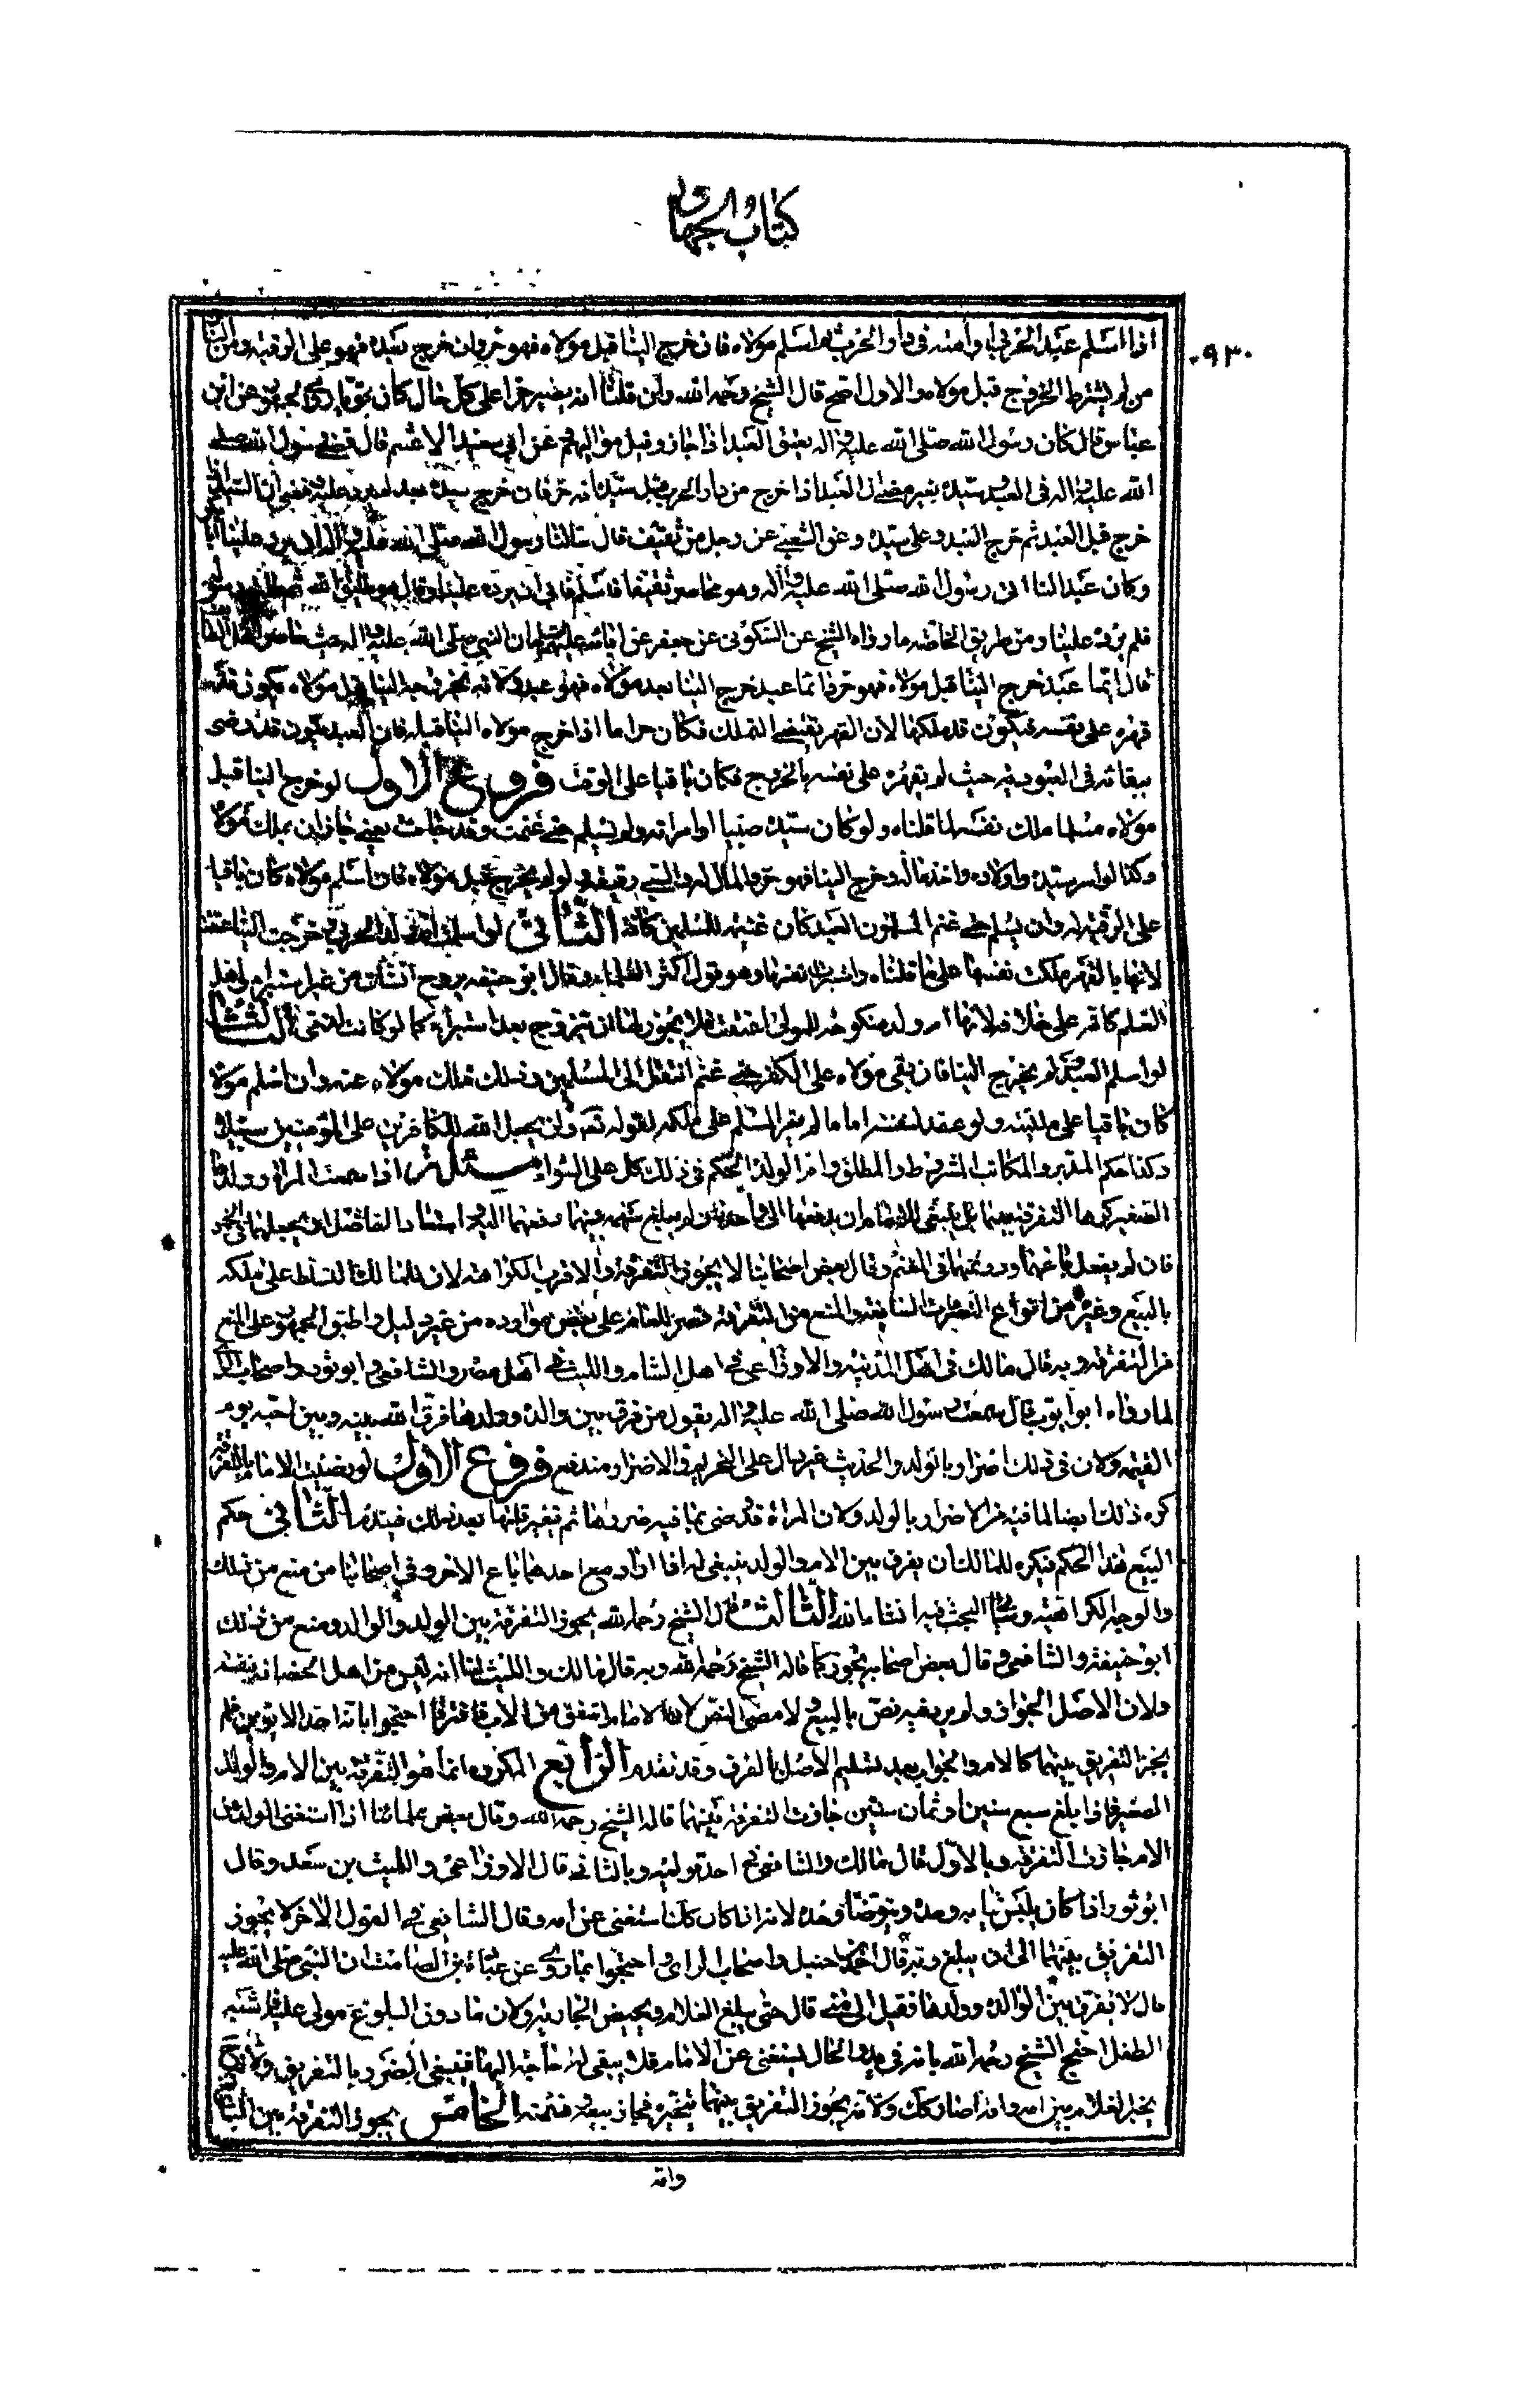 كتاب الجهاد
٩٣٠
اذا اسلم عبد الحربي او امته في دار الحرب ثم اسلم مولاه فان خرج الينا قبل مولاه فهو حر وان خرج بعده فهو على الرقية ومن
من لم يشترط الخروج قبل مولاه والاول اصح قال الشيخ رحمه الله وان قلنا انه يصير حرا على كل حال كان قويا روى الجمهور عن ابن
عباس قال كان رسول الله صلى الله عليه واله يعتق العبد اذا جاز وقبل مواليهم عن ابي سعيد الاعثم قال قضى رسول الله صلى
الله عليه واله في العبد وسيده قضى ان العبد اذا خرج من دار الحرب قبل سيده انه حر فان خرج سيده بعد لم يرد عليه وقضى ان السيد اذا
خرج قبل العبد ثم خرج العبد رد على سيده وعن الشعبي عن رجل من ثقيف قال سالنا رسول الله صلى الله عليه واله ان يرد علينا
وكان عبدا لنا اتى رسول الله صلى الله عليه واله وهو محاصر ثقيفا فاسلم فابى ان يرده علينا وقال هو طليق الله ثم طليق رسوله
فلم يرده علينا ومن طريق الخاصة ما رواه الشيخ عن السكوني عن جعفر عن ابائه عليهم ان النبي صلى الله عليه واله حيث حاصر اهل
قال ايما عبد خرج الينا قبل مولاه فهو حر وايما عبد خرج الينا بعد مولاه فهو عبد ولانه بخروجه الينا قبل مولاه يكون قد
قهره على نفسه فيكون قد ملكها لان القهر يقتضي التملك فكان حرا ما اذا خرج مولاه الينا قبله فان العبد يكون قد رضى
ببقائه في العبودية حيث لم يقهره على نفسه بالخروج فكان باقيا على الوقف فروع الاول لو خرج الينا قبل
مولاه مسلما ملك نفسه لما قلناه ولو كان سيده صبيا او امراته ولم يسلم حتى غنمت وقد جاءت يعني جاز ان يملك مولاه
وكذا لو اسر سيده واولاده واخذ ماله وخرج الينا فهو حر والمال له والسبي رقيقه ولو لم يخرج قبل مولاه فان اسلم مولاه كان باقيا
على الرقية له وان لم يسلم حتى غنم المسلمون العبد كان غنيمة للمسلمين كافة الثاني لو اسلمت ام ولد الحربي وخرجت الينا عتقت
لانها بالقهر ملكت نفسها على ما قلناه واستبرات نفسها وهو قول اكثر العلماء وقال ابو حنيفة يزوج ان شاءت من غير استبراء واهل
العلم كافة على خلافه لانها ام ولد منكوحة للمولى اعتقت فلا يجوز لها ان تتزوج بعد استبراء كما لو كانت لذمي الثالث
لو اسلم العبد ولم يخرج الينا فان بقى مولاه على الكفر حتى غنم انتقل الى المسلمين وذلك تملك مولاه عنه وان اسلم مولاه
كان باقيا على ملكيته ولو عقد لنفسه امانا لم يقر المسلم على ملكه لقوله تعه ولن يجعل الله للكافرين على المؤمنين سبيلا
وكذا حكم المدبر والمكاتب المشروط والمطلق وام الولد الحكم في ذلك كل على السواء مسئلة اذا سبيت المراة وولدها
الصغير كره التفرقة بينهما بل ينبغي للامام ان يدفعها الى واحد فان لم يبلغ سهمه قيمتهما دفعهما اليه واستعاد الفاضل او يجعلهما في الخمس
فان لم يفعل باعهما ورد ثمنهما في المغنم وقال بعض اصحابنا لا يجوز التفرقة والاقرب الكراهة لان للمالك التسلط على ملكه
بالبيع وغيره من انواع التصرفات السائغة والمنع من التفرقة قصر للعام على بعض موارده من غير دليل واطبق الجمهور على المنع
من التفرقة وبه قال مالك في اهل المدينة والاوزاعي في اهل الشام والليث في اهل مصر والشافعي وابو ثور واصحاب الراى
لما رواه ابو ايوب قال سمعت رسول الله صلى الله عليه واله يقول من فرق بين والدة وولدها فرق الله بينه وبين احبته يوم
القيمة ولان في ذلك اضرارا بالولد والحديث غير دال على التحريم والاضرار مندفع فروع الاول لو رضيت الام بالتفرقة
كره ذلك ايضا لما فيه من الاضرار بالولد ولان المراة قد ترضى بما فيه ضررها ثم تتغير قلبها بعد ذلك فيندم الثاني حكم
البيع هذا الحكم فيكره للمالك ان يفرق بين الام والولد ينبغي له اذا اراد بيع احدهما باع الاخر وفي اصحابنا من منع من ذلك
والوجه الكراهية وسياتي البحث فيه انشاء الله الثالث قال الشيخ رحمه الله يجوز التفرقة بين الولد والوالد ومنع من ذلك
ابو حنيفة والشافعي وقال بعض اصحابه يجوز كما قاله الشيخ رحمه الله وبه قال مالك والليث لنا انه ليس من اهل الحضانة بنفسه
ولان الاصل الجواز ولم يرد فيه نص بالبيع ولا معنى النص لان الام اشفق من الاب فافترقا احتجوا بانه احد الابوين فلم
يجز التفريق بينهما كالام والجواب بعد تسليم الاصل بالفرق وقد تقدم الرابع المكروه انما هو التفرقة بين الام والولد
الصغير فاذا بلغ سبع سنين او ثمان سنين جازت التفرقة بينهما قاله الشيخ رحمه الله وقال بعض علمائنا اذا استغنى الولد عن
الام جازت التفرقة وبالاول قال مالك والشافعي في احد قوليه وبالثاني قال الاوزاعي والليث بن سعد وقال
ابو ثور اذا كان يلبس ثيابه وحده ويتوضا وحده لانه اذا كان كك استغنى عن امه وقال الشافعي في القول الاخر لا يجوز
التفريق بينهما الى ان يبلغ وبه قال احمد بن حنبل واصحاب الراى واحتجوا بما روى عن عبادة بن الصامت ان النبي صلى الله عليه
قال لا يفرق بين الوالدة وولدها فقيل الى متى قال حتى يبلغ الغلام وتحيض الجارية ولان ما دون البلوغ مولى عليه اشبه
الطفل احتج الشيخ رحمه الله بانه في هذا الحال يستغنى عن الام فلا يبقى له حاجة اليها فينتفي الضرر بالتفريق ولانه
يخير الغلام بين امه وابيه اذا صار كك ولانه يجوز التفريق بينهما بتخييره فجاز ببيعه وقسمته الخامس يجوز التفرقة بين
وانه